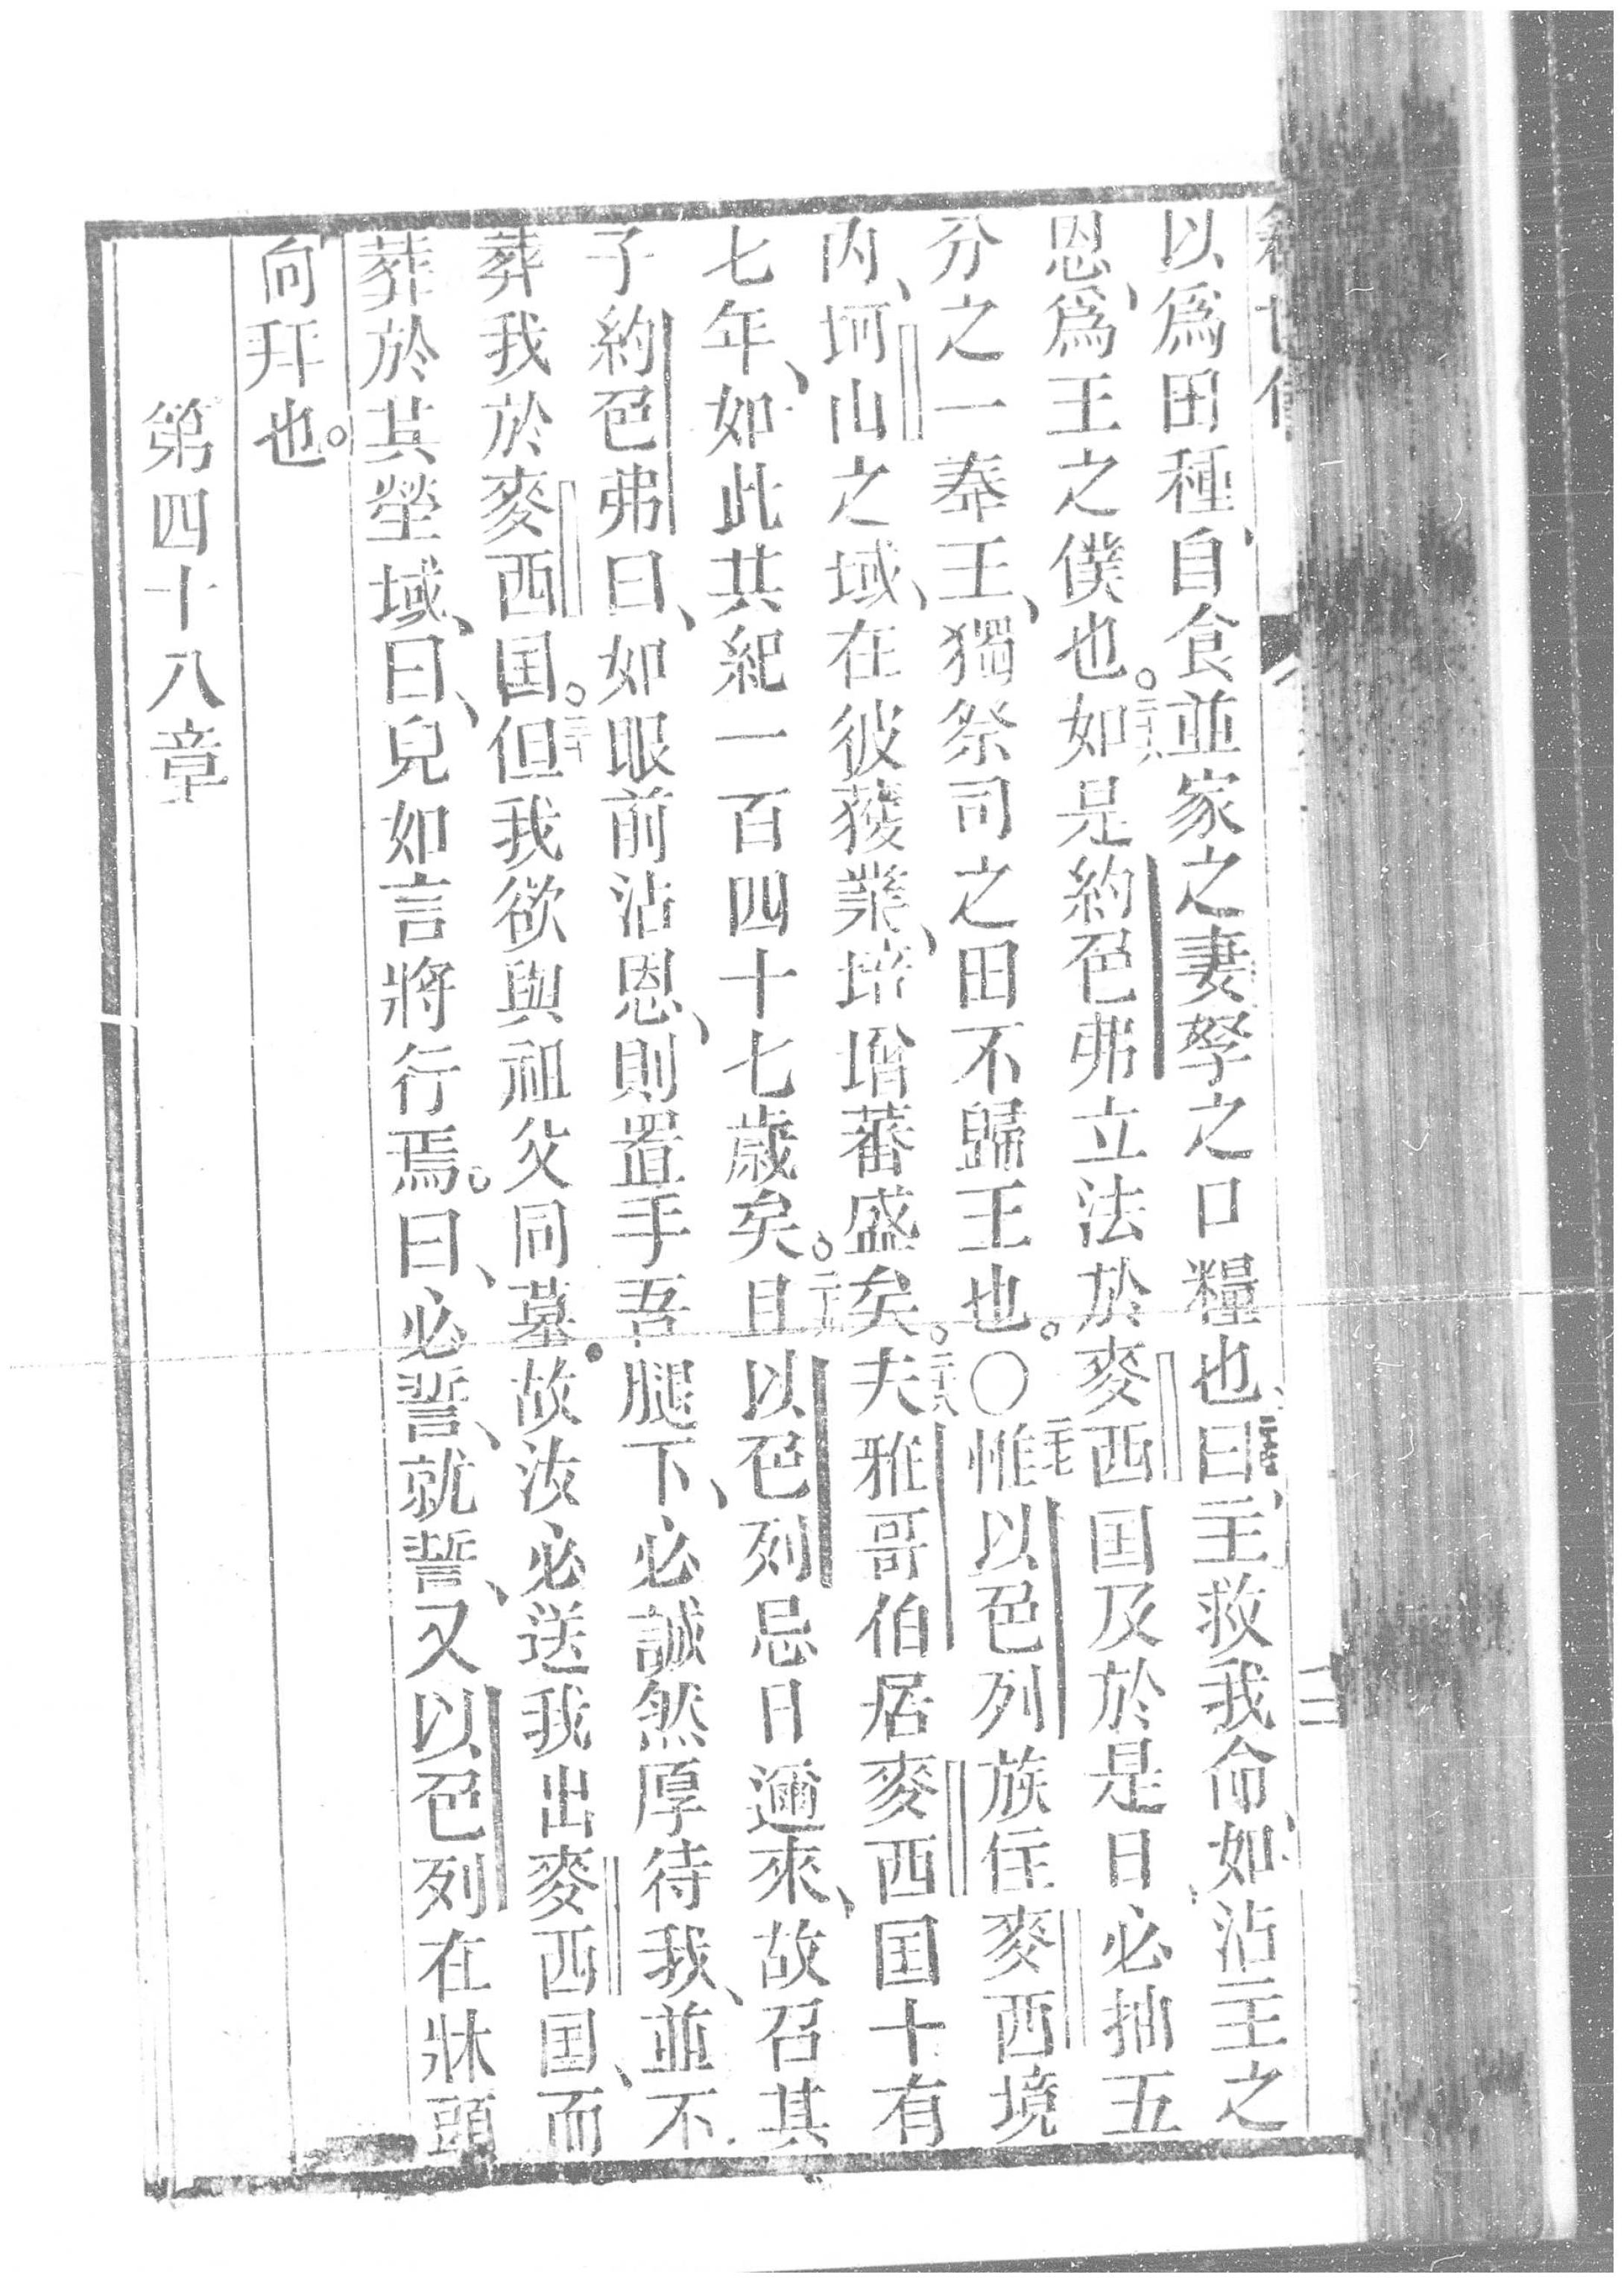 以爲田種、自食並家之妻孥之口糧也、曰、主救我命、如沾王之
恩、爲王之僕也。如是約色弗立法於麥西国及於是日必抽五
分之一奉王、獨祭司之田不歸王也。○惟以色列族住麥西境
內、坷山之域、在彼獲業、培增蕃盛矣。夫雅哥伯居麥西国十有
七年、如此共紀一百四十七歲矣。且以色列忌日邇來、故召其
子約色弗曰、如眼前沾恩、則置手吾腿下、必誠然厚待我、並不
葬我於麥西国。但我欲與祖父同墓故汝必送我出麥西国、而
葬於其塋域、曰、兒如言將行焉。曰、必誓、就誓、又以色列在牀頭
向拜也。
第四十八章